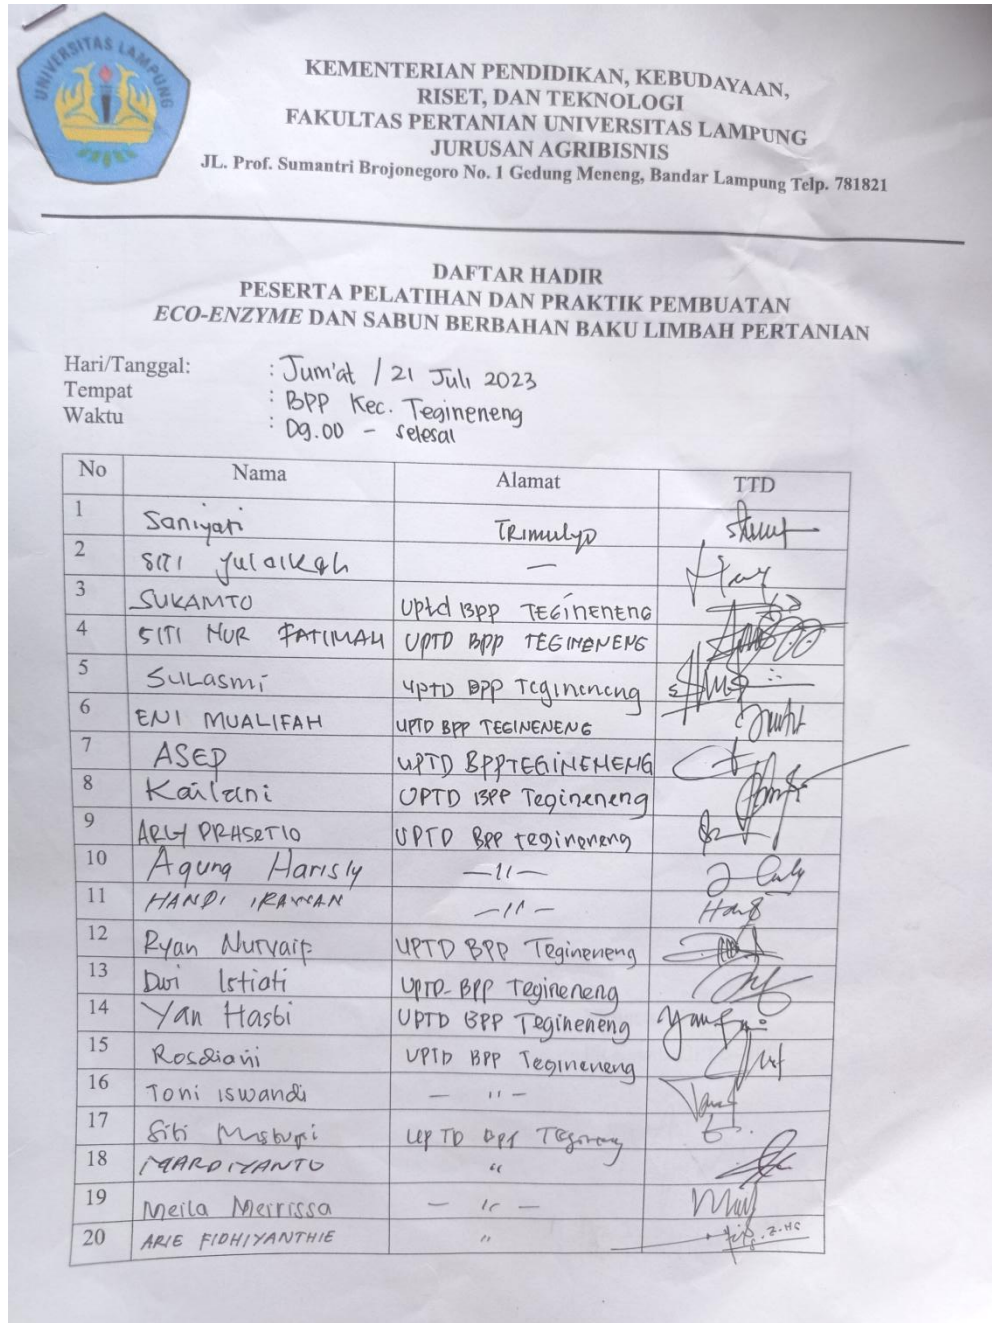 UNIVERSITAS LAMPUNG
KEMENTERIAN PENDIDIKAN, KEBUDAYAAN,
RISET, DAN TEKNOLOGI
FAKULTAS PERTANIAN UNIVERSITAS LAMPUNG
JURUSAN AGRIBISNIS
JL. Prof. Sumantri Brojonegoro No. 1 Gedung Meneng, Bandar Lampung Telp. 781821
DAFTAR HADIR
PESERTA PELATIHAN DAN PRAKTIK PEMBUATAN
ECO-ENZYME DAN SABUN BERBAHAN BAKU LIMBAH PERTANIAN
Hari/Tanggal: : Jum'at / 21 Juli 2023
Tempat : BPP Kec. Tegineneng
Waktu : 09.00 - selesai
No Nama Alamat TTD
1 Saniyati Trimulyo
2 SITI Julaikah —
3 SUKAMTO Uptd BPP TEGINENENG
4 SITI NUR FATIMAH UPTD BPP TEGINENENG
5 SULasmi UPTD BPP Tegineneng
6 ENI MUALIFAH UPTD BPP TEGINENENG
7 ASEP UPTD BPP TEGINENENG
8 Kailani UPTD BPP Tegineneng
9 PRASETIO UPTD BPP tegineneng
10 Agung Harisly —11—
11 HANDI IRAWAN —11—
12 Ryan UPTD BPP Tegineneng
13 Dwi Istiati UPTD-BPP Tegineneng
14 Yan Hasbi UPTD BPP Tegineneng
15 Rosdiani UPTD BPP Tegineneng
16 Toni iswandi — 11 —
17 Siti UPTD
18 MARDIYANTO "
19 Meila Merrissa — 11 —
20 ARIE FIDHIYANTHIE "